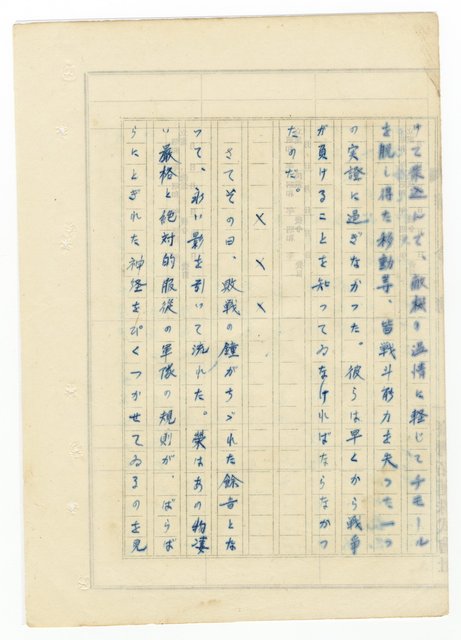 けて乗込んで、敵機の温情に軽じてチモール
を脱し得た移動等、皆戦斗能力を失つた一つ
の実證に過ぎなかつた。彼らは早くから戦争
が負けることを知つてゐなければならなかつ
たのだ。
×××
さてその日、敗戦の鐘がちぎれた餘音とな
つて、永い影を引いて流れた。榮はあの物凄
い厳格と絶対的服従の軍隊の規則が、ばらば
らにとぎれた神経をぴくつかせてゐるのを見